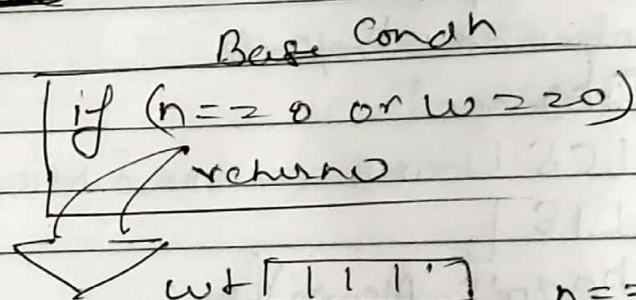 Base Condn
if (n == 0 or w == 0)
return 0
wt n =